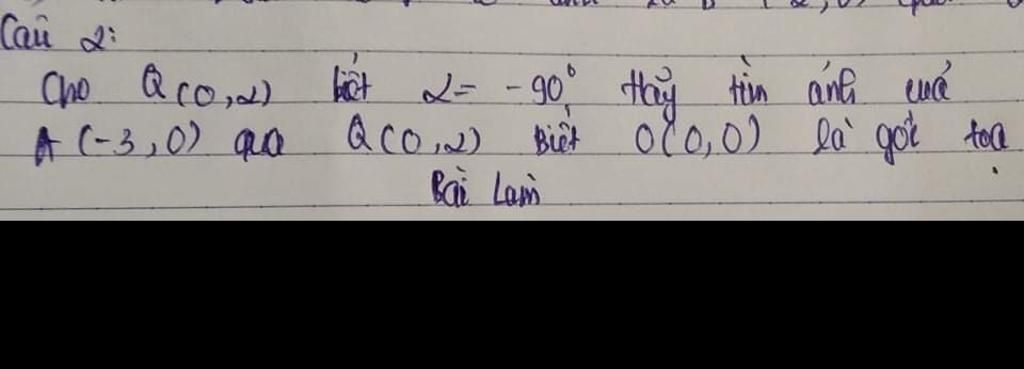 Câu 2:
Cho Q(O,α) biết α = -90° hãy tìm ảnh của
A(-3,0) qua Q(O,α) Biết O(0,0) là gốc toạ
Bài Làm